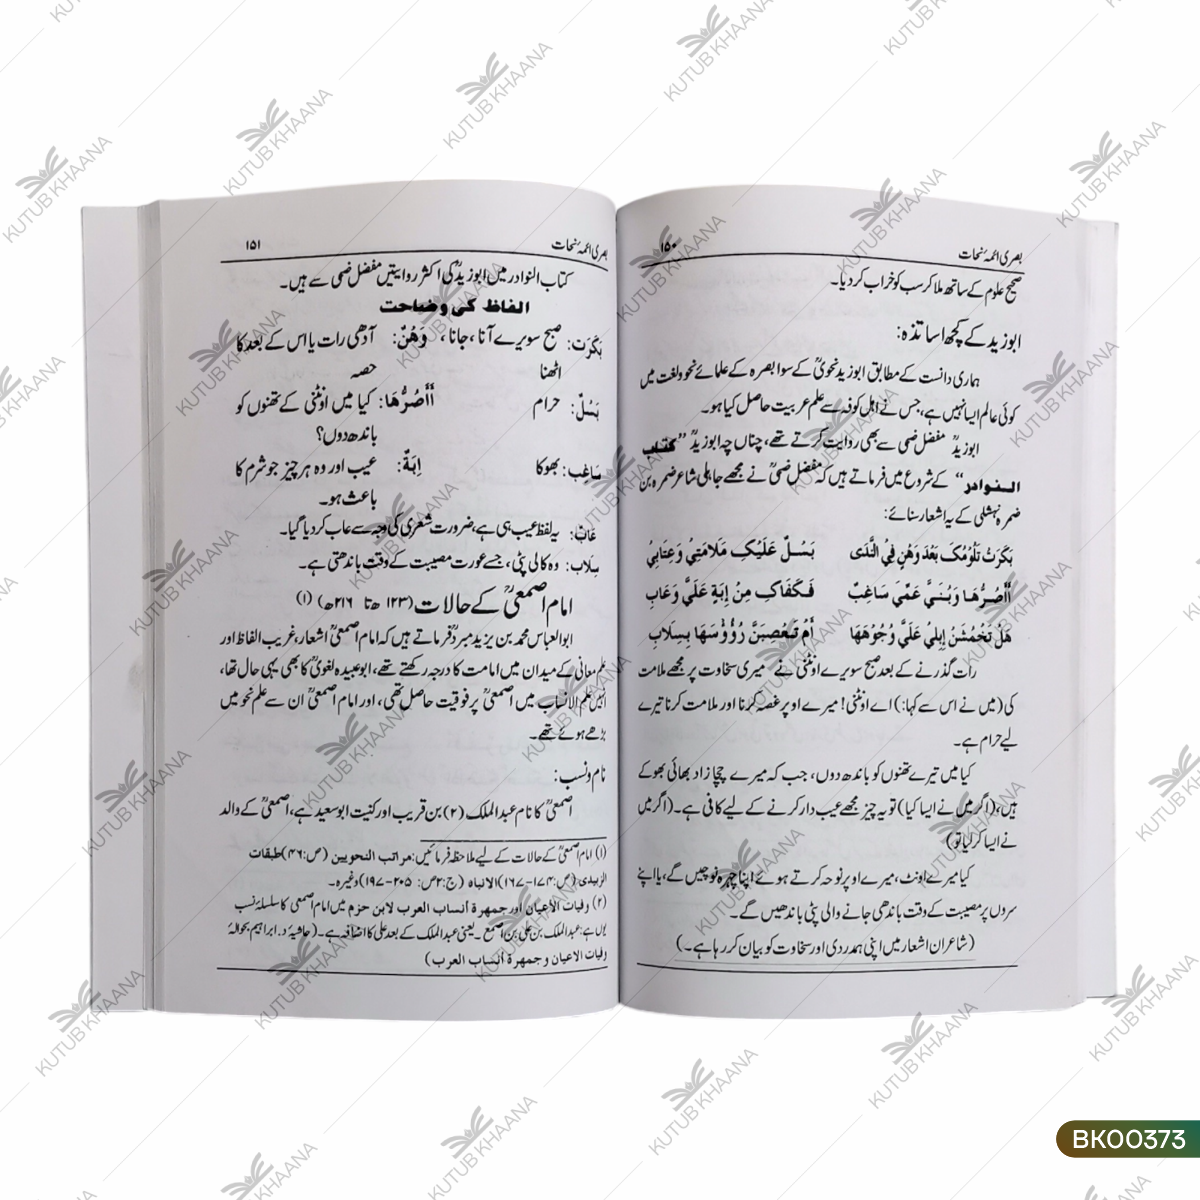 بصری ائمۂ نحات ۱۵۰
صحیح علوم کے ساتھ ملا کر سب کو خراب کر دیا۔
ابوزید کے کچھ اساتذہ:
ہماری دانست کے مطابق ابوزید نحویؒ کے سوا بصرہ کے علمائے نحو ولغت میں
کوئی عالم ایسا نہیں ہے، جس نے اہل کوفہ سے علم عربیت حاصل کیا ہو۔
ابوزیدؒ مفضل ضبی سے بھی روایت کرتے تھے، چناں چہ ابوزیدؒ ”کتاب
النوادر“ کے شروع میں فرماتے ہیں کہ مفضل ضبیؒ نے مجھے جاہلی شاعر ضمرہ بن
ضمرہ نہشلی کے یہ اشعار سنائے:
بَكَرَتْ تَلُوْمُكَ بَعْدَ وَهْنٍ فِي النَّدَى بَسْلٌ عَلَيْكِ مَلَامَتِيْ وَعِتَابِيْ
أَأَصُرُّهَا وَبُنَيُّ عَمِّيْ سَاغِبٌ فَكَفَاكِ مِنْ إِبَةٍ عَلَيَّ وَعَابِ
هَلْ تَخْمُشَنْ إِبِلِيْ عَلَيَّ وُجُوْهَهَا أَمْ تَعْصِبَنَّ رُؤُوْسَهَا بِسِلَابِ
رات گذرنے کے بعد صبح سویرے اونٹنی نے میری سخاوت پر مجھے ملامت
کی (میں نے اس سے کہا:) اے اونٹنی! میرے اوپر غصہ کرنا اور ملامت کرنا تیرے
لیے حرام ہے۔
کیا میں تیرے تھنوں کو باندھ دوں، جب کہ میرے چچا زاد بھائی بھوکے
ہیں، (اگر میں نے ایسا کیا) تو یہ چیز مجھے عیب دار کرنے کے لیے کافی ہے۔ (اگر میں
نے ایسا کر لیا تو)
کیا میرے اونٹ، میرے اوپر نوحہ کرتے ہوئے اپنا چہرہ نوچیں گے، یا اپنے
سروں پر مصیبت کے وقت باندھی جانے والی پٹی باندھیں گے۔
(شاعر ان اشعار میں اپنی ہمدردی اور سخاوت کو بیان کر رہا ہے۔)
بصری ائمۂ نحات ۱۵۱
کتاب النوادر میں ابوزیدؒ کی اکثر روایتیں مفضل ضبی سے ہیں۔
الفاظ کی وضاحت
بَكَرَتْ: صبح سویرے آنا، جانا، وَهْنٌ: آدھی رات یا اس کے بعد کا
اٹھنا حصہ
بَسْلٌ: حرام أَأَصُرُّهَا: کیا میں اونٹنی کے تھنوں کو
باندھ دوں؟
سَاغِب: بھوکا اِبَةٌ: عیب اور وہ ہر چیز جو شرم کا
باعث ہو۔
عَابٌ: یہ لفظ عیب ہی ہے، ضرورت شعری کی وجہ سے عاب کر دیا گیا۔
سِلَاب: وہ کالی پٹی، جسے عورت مصیبت کے وقت باندھتی ہے۔
امام اصمعیؒ کے حالات (۱۲۳ھ تا ۲۱۶ھ) (۱)
ابوالعباس محمد بن یزید مبردؒ فرماتے ہیں کہ امام اصمعیؒ اشعار، غریب الفاظ اور
علم معانی کے میدان میں امامت کا درجہ رکھتے تھے، ابوعبیدہ لغویؒ کا بھی یہی حال تھا،
انہیں علم الانساب میں اصمعیؒ پر فوقیت حاصل تھی، اور امام اصمعیؒ ان سے علم نحو میں
بڑھے ہوئے تھے۔
نام ونسب:
اصمعیؒ کا نام عبدالملک (۲) بن قریب اور کنیت ابوسعید ہے، اصمعیؒ کے والد
(۱) امام اصمعیؒ کے حالات کے لیے ملاحظہ فرمائیں: مراتب النحويين (ص:۴۶) طبقات
الزبيدي: (ص:۱۷۴-۱۶۷) الانباه (ج:۲ص: ۲۰۵-۱۹۷) وغیرہ۔
(۲) وفيات الأعيان اور جمهرة أنساب العرب لابن حزم میں امام اصمعی کا سلسلۂ نسب
یوں ہے: عبدالملک بن علی بن اصمع۔ یعنی عبدالملک کے بعد علی کا اضافہ ہے۔ (حاشیۂ د. ابراہیم بحوالۂ
وفيات الاعيان وجمهرة أنساب العرب)
KUTUB KHAANA
BK00373